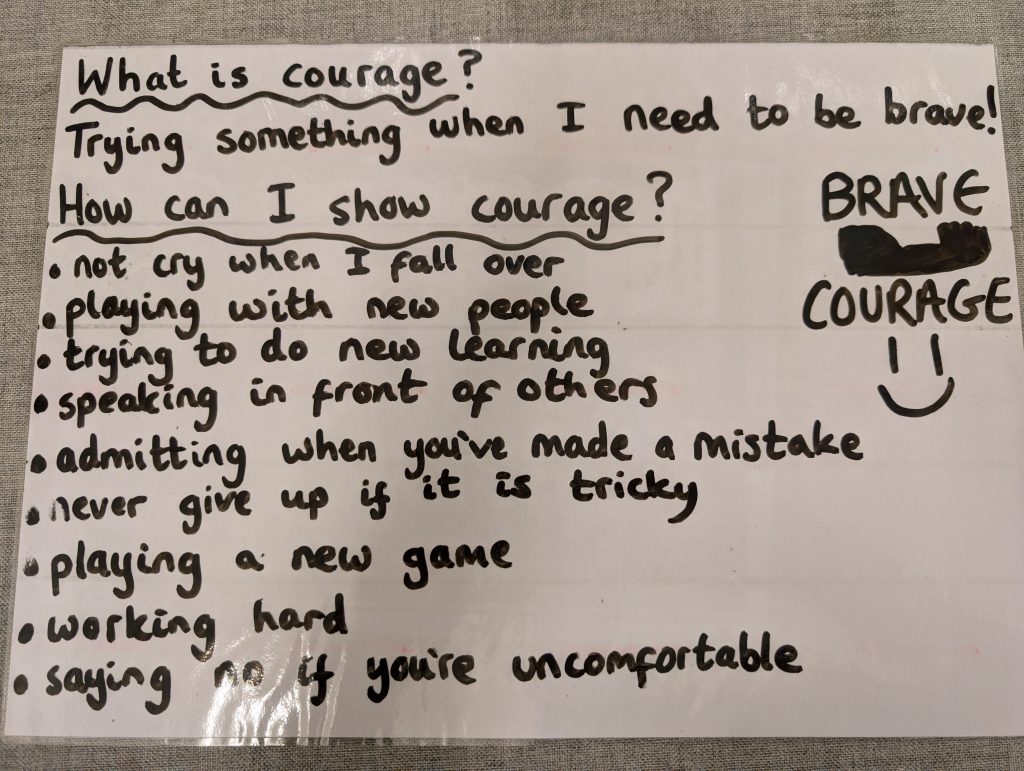 What is courage?
Trying something when I need to be brave!
How can I show courage?
• not cry when I fall over
• playing with new people
• trying to do new learning
• speaking in front of others
• admitting when you've made a mistake
• never give up if it is tricky
• playing a new game
• working hard
• saying no if you're uncomfortable
BRAVE
COURAGE